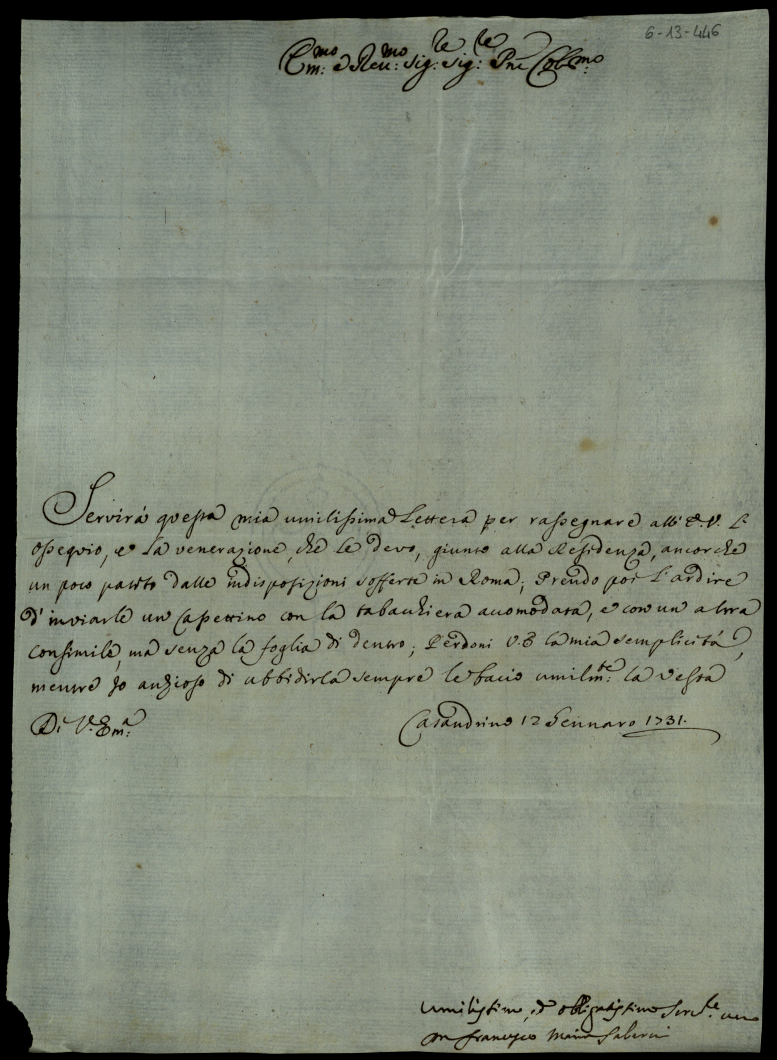 6-13-446
Em:mo e Reu:mo Sig:re Sig:re Pne Col:mo
Servirá questa mia umilissima Lettera per rassegnare all' E.V. l'
ossequio, e la venerazione, che le devo, giunto alla Residenza, ancorche
un poco patito dalle indisposizioni sofferte in Roma; Prendo poi l'ardire
d'inviarle un Cassettino con la tabachiera accomodata, e con un altra
consimile, ma senza la foglia di dentro; Perdoni V.E la mia semplicitá,
mentre Io anzioso di ubbidirla sempre le bacio umilm:te la Vesta
Di V. Em:a
Casandrino 12 Gennaro 1731.
Umilissimo, ed obbligatissimo Ser:re vero
Francesco Maria